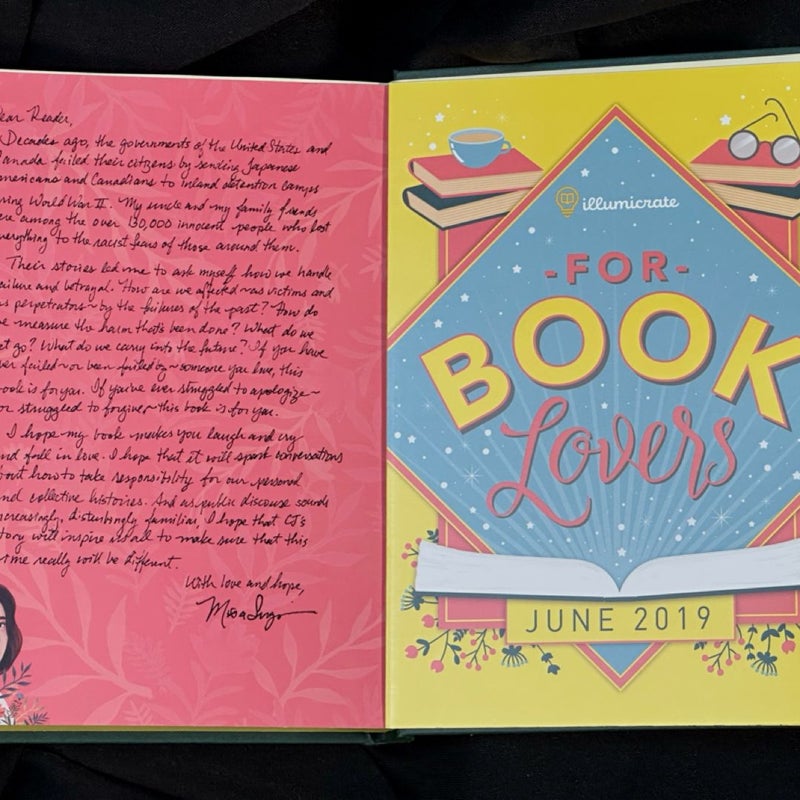 ear Reader,
Decades ago, the governments of the United States and
anada failed their citizens by sending Japanese
mericans and Canadians to inland detention camps
ring World War II. My uncle and my family friends
ere among the over 130,000 innocent people who lost
verything to the racist fears of those around them.
Their stories led me to ask myself how we handle
ailure and betrayal. How are we affected ~ as victims and
s perpetrators ~ by the failures of the past? How do
e measure the harm that's been done? What do we
et go? What do we carry into the future? If you have
ver failed ~ or been failed by ~ someone you love, this
ook is for you. If you've ever struggled to apologize ~
or struggled to forgive ~ this book is for you.
I hope my book makes you laugh and cry
nd fall in love. I hope that it will spark conversations
bout how to take responsibility for our personal
nd collective histories. And as public discourse sounds
ncreasingly, disturbingly familiar, I hope that CJ's
tory will inspire us all to make sure that this
me really will be different.
With love and hope,
Misa Sugi
illumicrate
-FOR-
BOOK
Lovers
JUNE 2019